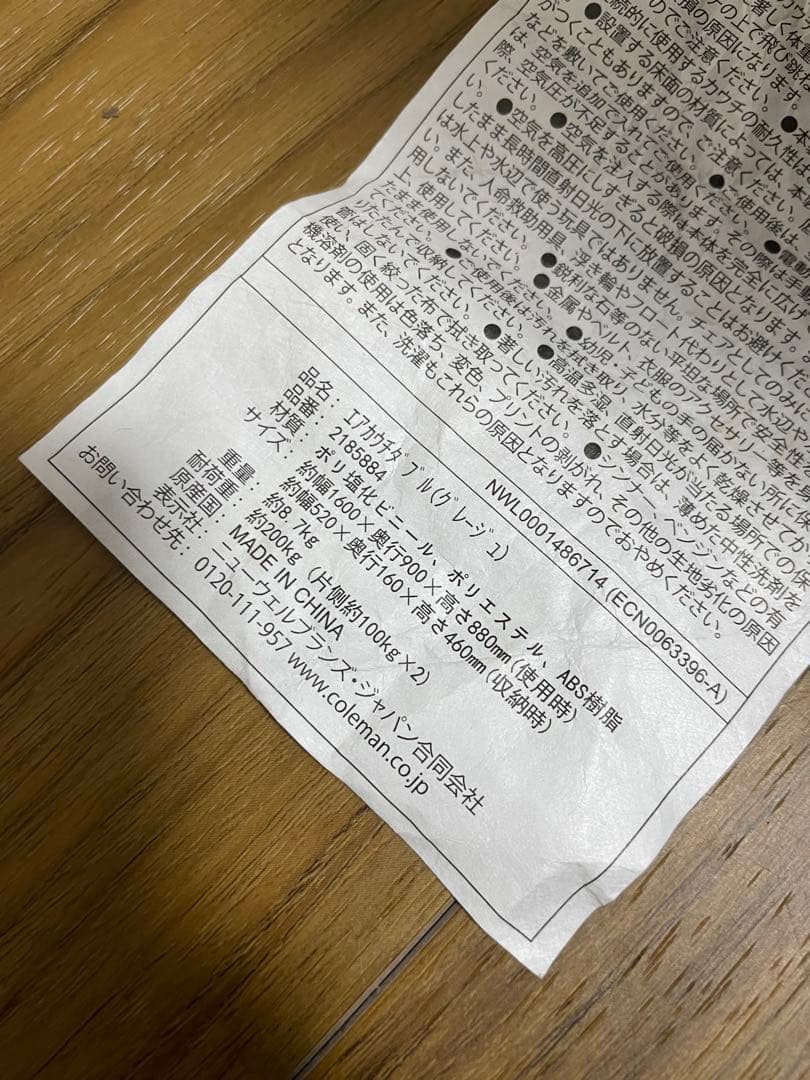 の上で飛び跳
損の原因になります。
のでご注意ください。
続的に使用するカウチの耐久性は
●設置する床面の材質によっては、本
がつくこともありますので、ご注意ください。
などを敷いてご使用ください。 ●ご使用後は、
は、空気を追加で入れてご使用ください。 ●電動
際、空気圧が不足することがあります。その際は手
ください。 ●空気を注入する際は本体を完全に広げ
●空気を高圧にしすぎると破損の原因となります。
したまま長時間直射日光の下に放置することはお避けくだ
は水上や水辺で使う玩具ではありません。チェアとしてのみ
また、人命救助用具、浮き輪やフロート代わりとして水辺や
用しないでください。 ●鋭利な石等のない平坦な場所で安全性
上、使用してください。 ●金属やベルト、衣服のアクセサリー等を
たまま使用しないでください。 ●幼児、子どもの手の届かない所に
ください。 ●ご使用後は汚れを拭き取り、水分等をよく乾燥させてか
りたたんで収納してください。 ●高温多湿、直射日光が当たる場所での保
管はしないでください。 ●著しい汚れを落とす場合は、薄めた中性洗剤を
使い、固く絞った布で拭き取ってください。 ●シンナー、ベンジンなどの有
機溶剤の使用は色落ち、変色、プリントの剥がれ、その他の生地劣化の原因
となります。また、洗濯もこれらの原因となりますのでおやめください。
NWL0001486714 (ECN0063396-A)
品名：エアカウチダブル(グレージュ)
品番：2185884
材質：ポリ塩化ビニール、ポリエステル、ABS樹脂
サイズ：約幅1600×奥行900×高さ880㎜(使用時)
約幅520×奥行160×高さ460㎜(収納時)
重量：約8.7kg
耐荷重：約200kg（片側約100kg×2)
原産国：MADE IN CHINA
表示社：ニューウェルブランズ・ジャパン合同会社
お問い合わせ先：0120-111-957 www.coleman.co.jp